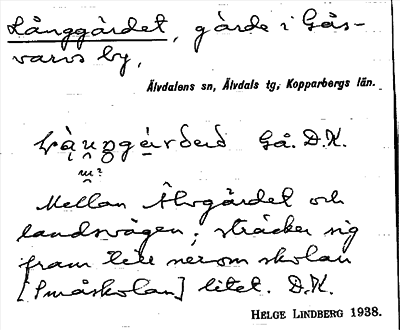 Långgärdet, gärde i Gås-
varvs by,
Älvdalens sn, Älvdals tg, Kopparbergs län.
Gå. D.K.
Mellan Åkrgärdet och
landsvägen; sträcker sig
fram till nerom skolan
[Småskolan] litet. D.K.
HELGE LINDBERG 1938.